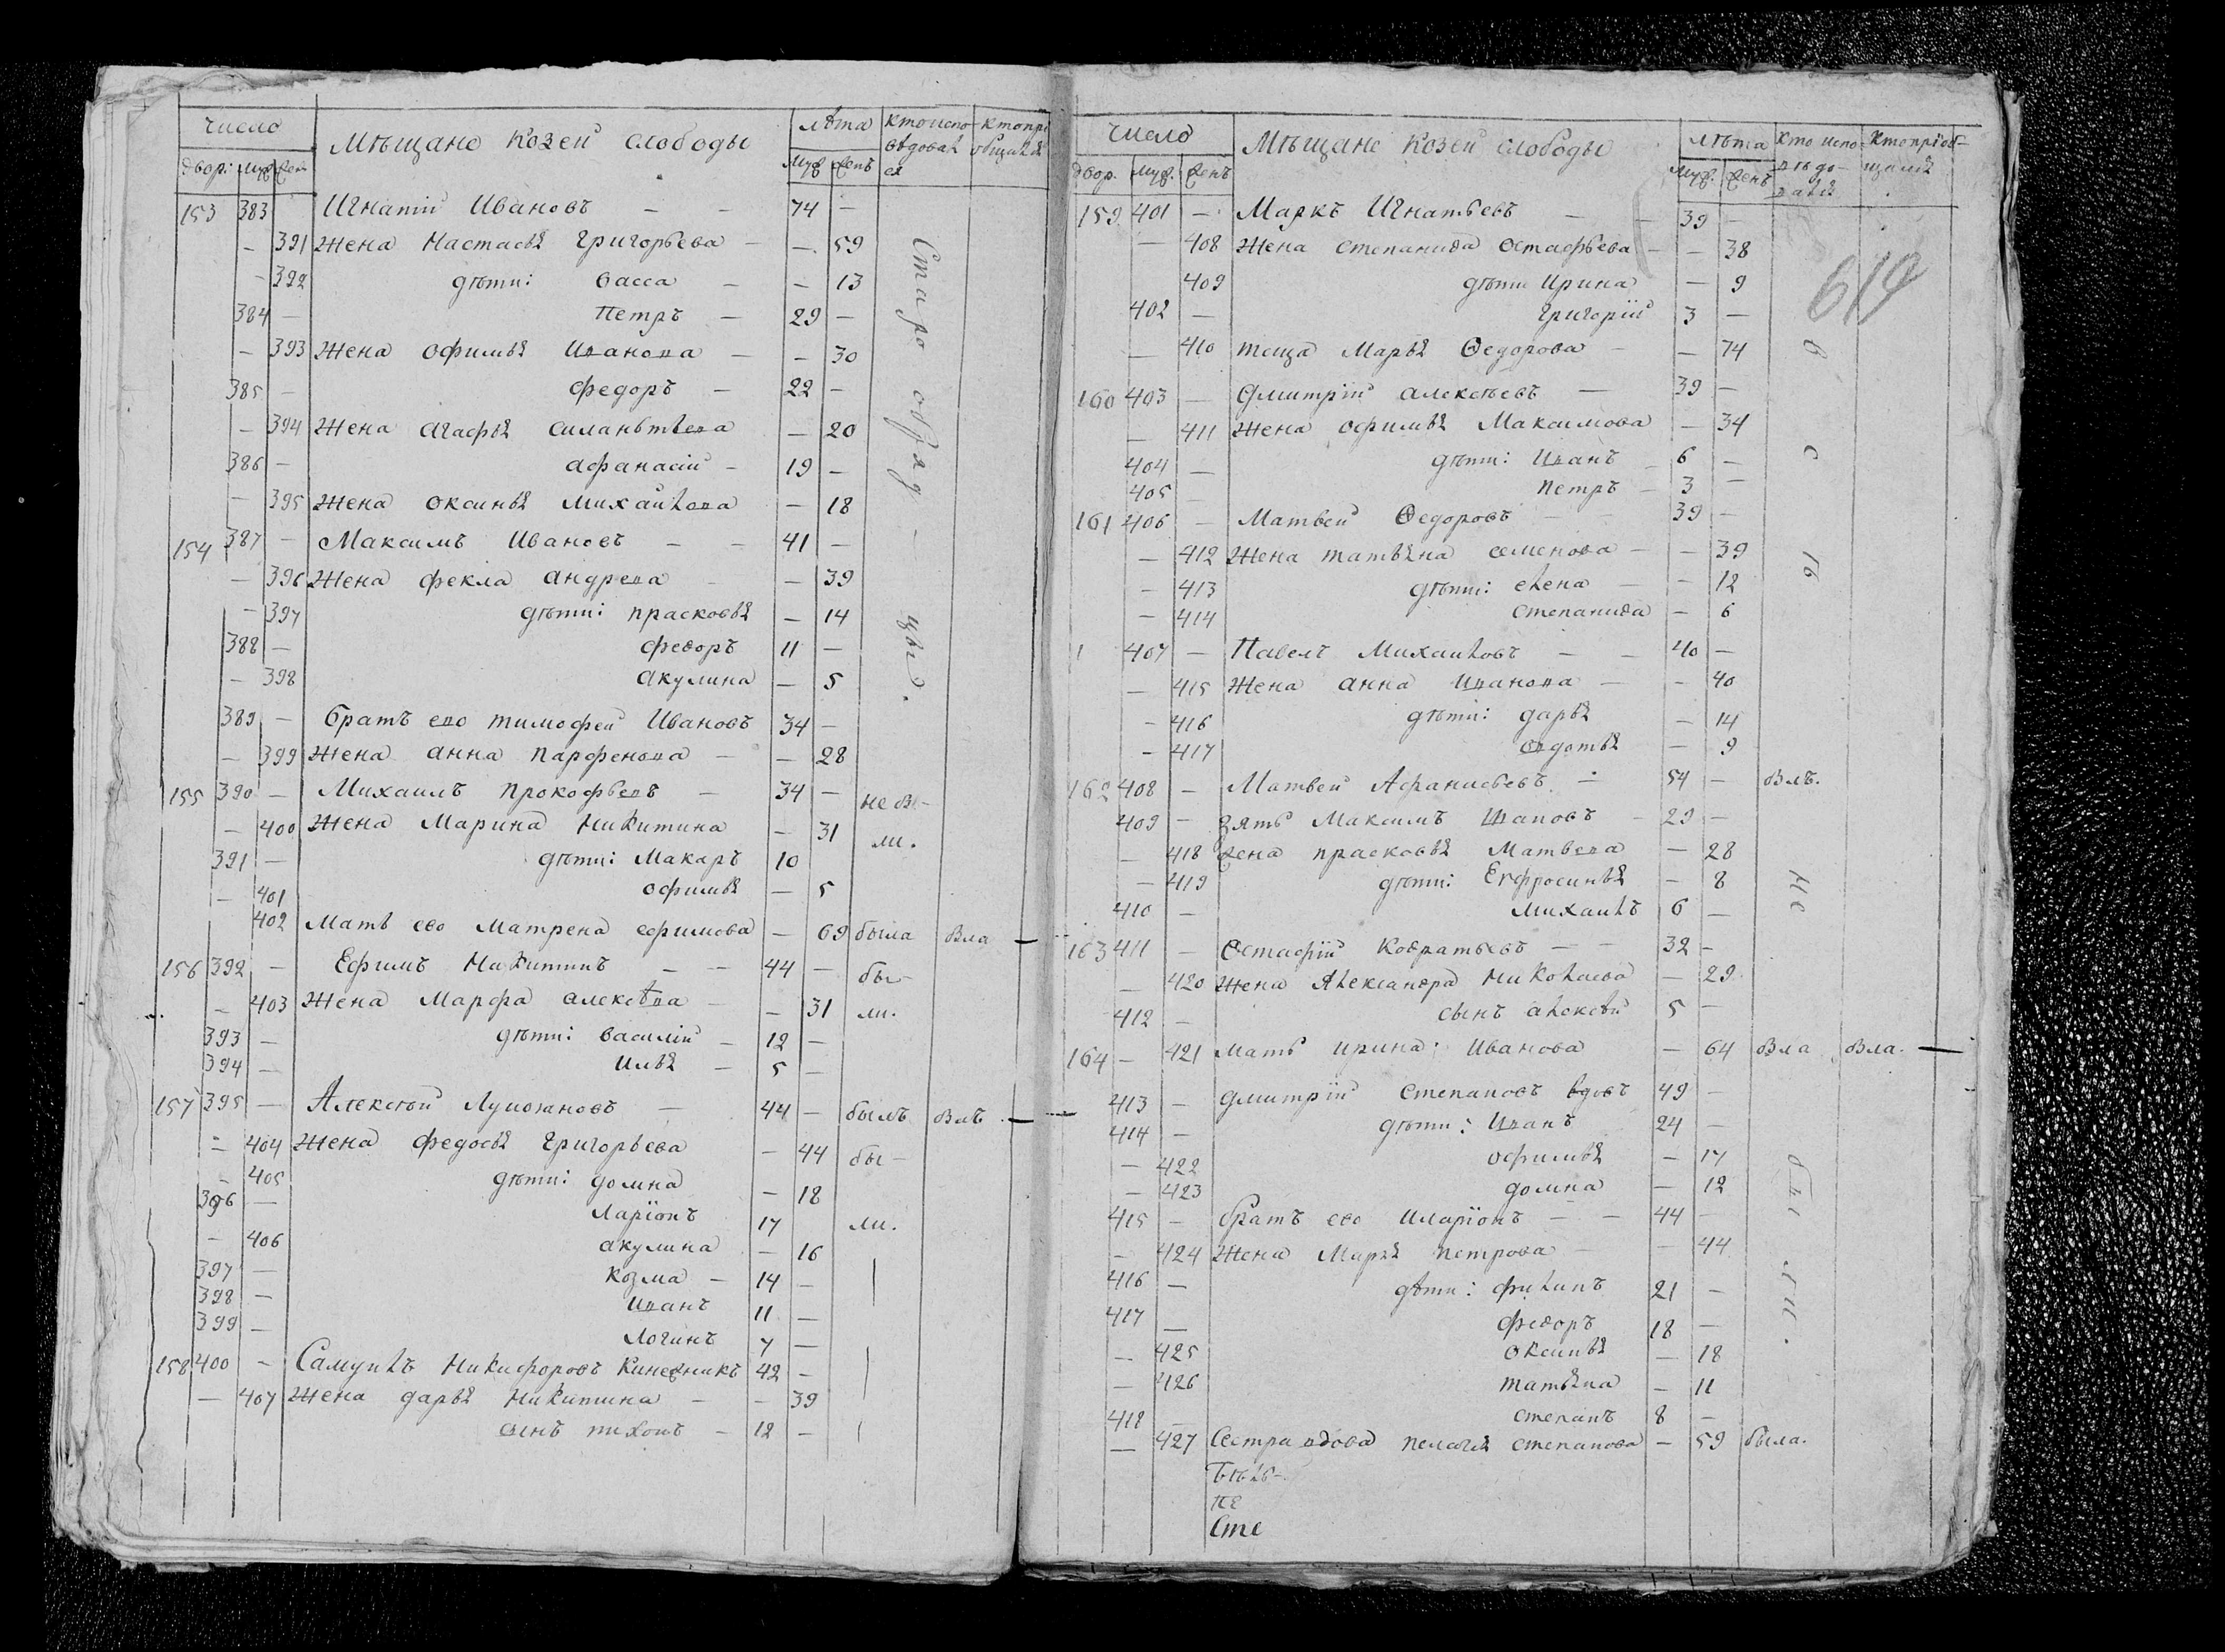 число Мѣщане Козей слободы лѣта кто испо- кто прі
двор: муж жен муж женъ вѣдовал общался
ся
153 383 Игнатій Ивановъ — — 74 —
— 391 Жена Настасья Григорьева — — 59
— 392 дѣти: Васса — — 13
384 — Петръ — 29 —
— 393 Жена Офимья Иванова — — 30
385 — Федоръ — 22 —
— 394 Жена Агафья — 20
386 — Афанасій — 19 —
— 395 Жена Оксинья Михайлова — 18
154 387 — Максимъ Ивановъ — — 41 —
— 396 Жена Фекла Андрева — — 39
— 397 дѣти: Прасковья — 14
388 — Федоръ 11 —
— 398 Акулина — 5
389 — братъ ево Тимофей Ивановъ 34 —
— 399 Жена Анна Парфенова — — 28
Старо обряд — цы.
155 390 — Михаилъ Прокофьевъ — 34 — не бы-
— 400 Жена Марина Никитина — 31 ли.
391 — дѣти: Макаръ 10
— 401 Офимья — 5
402 Мать ево Матрена Ефимова — 69 была Бла —
156 392 — Ефимъ Никитинъ — — 44 — бы-
— 403 Жена Марфа Алексѣва — — 31 ли.
393 — дѣти: Василій — 12 —
394 — Илья — 5 —
157 395 — Алексѣй — 44 — былъ Блъ —
— 404 Жена Федосья Григорьева — 44 бы-
— 405 дѣти: Домна — 18
396 — Ларіонъ 17 ли.
— 406 Акулина — 16
397 — Козма — 14 —
398 — Иванъ 11 —
399 — Логинъ 7 —
158 400 — Самуилъ Никифоровъ 42 —
— 407 Жена Дарья Никитина — — 39
сынъ Тихонъ — 12 —
число Мѣщане Козей слободы лѣта кто испо- кто пріоб-
двор. муж. женъ муж. женъ вѣдо- щался
вался
619
159 401 — Маркъ Игнатьевъ — — 39 —
— 408 Жена Степанида Остафьева — — 38
409 дѣти Ирина — 9
402 — Григорій 3 —
— 410 теща Марья Ѳедорова — — 74
160 403 — Дмитрій Алексѣевъ — 39 —
— 411 Жена Офимья Максимова — 34
404 — дѣти: Иванъ 6 —
405 — Петръ — 3 —
161 406 — Матвей Ѳедоровъ — — 39 —
— 412 Жена Татьяна Семенова — — 39
— 413 дѣти: Елена — — 12
— 414 Степанида — 6
1 407 — Павелъ Михайловъ — — 40 —
— 415 Жена Анна Иванова — — 40
— 416 дѣти: Дарья — 14
— 417 Овдотья — 9
162 408 — Матвей Афанасьевъ — 54 — Блъ.
409 — Зять Максимъ — 29 —
— 418 Жена Прасковья Матвева — 28
— 419 дѣти: Ефросинья — 8
410 — Михаилъ 6 —
163 411 — Остафій — — 32 —
— 420 Жена Александра Николаева — 29
412 — сынъ Алексѣй 5 —
164 — 421 Мать Ирина Иванова — 64 Бла Бла. —
413 — Дмитрій Степановъ вдовъ 49 —
414 — дѣти: Иванъ 24 —
— 422 Офимья — 17
— 423 Домна — 12
415 — братъ ево Иларіонъ — — 44 —
— 424 Жена Марья Петрова — — 44
416 — дѣти: Филипъ 21 —
417 — Федоръ 18 —
— 425 Оксинья — 18
— 426 Татьяна — 11
418 — Степанъ 8 —
— 427 Сестра вдова Пелагея Степанова — 59 была.
В с ѣ не бы ли.
пе
Сте